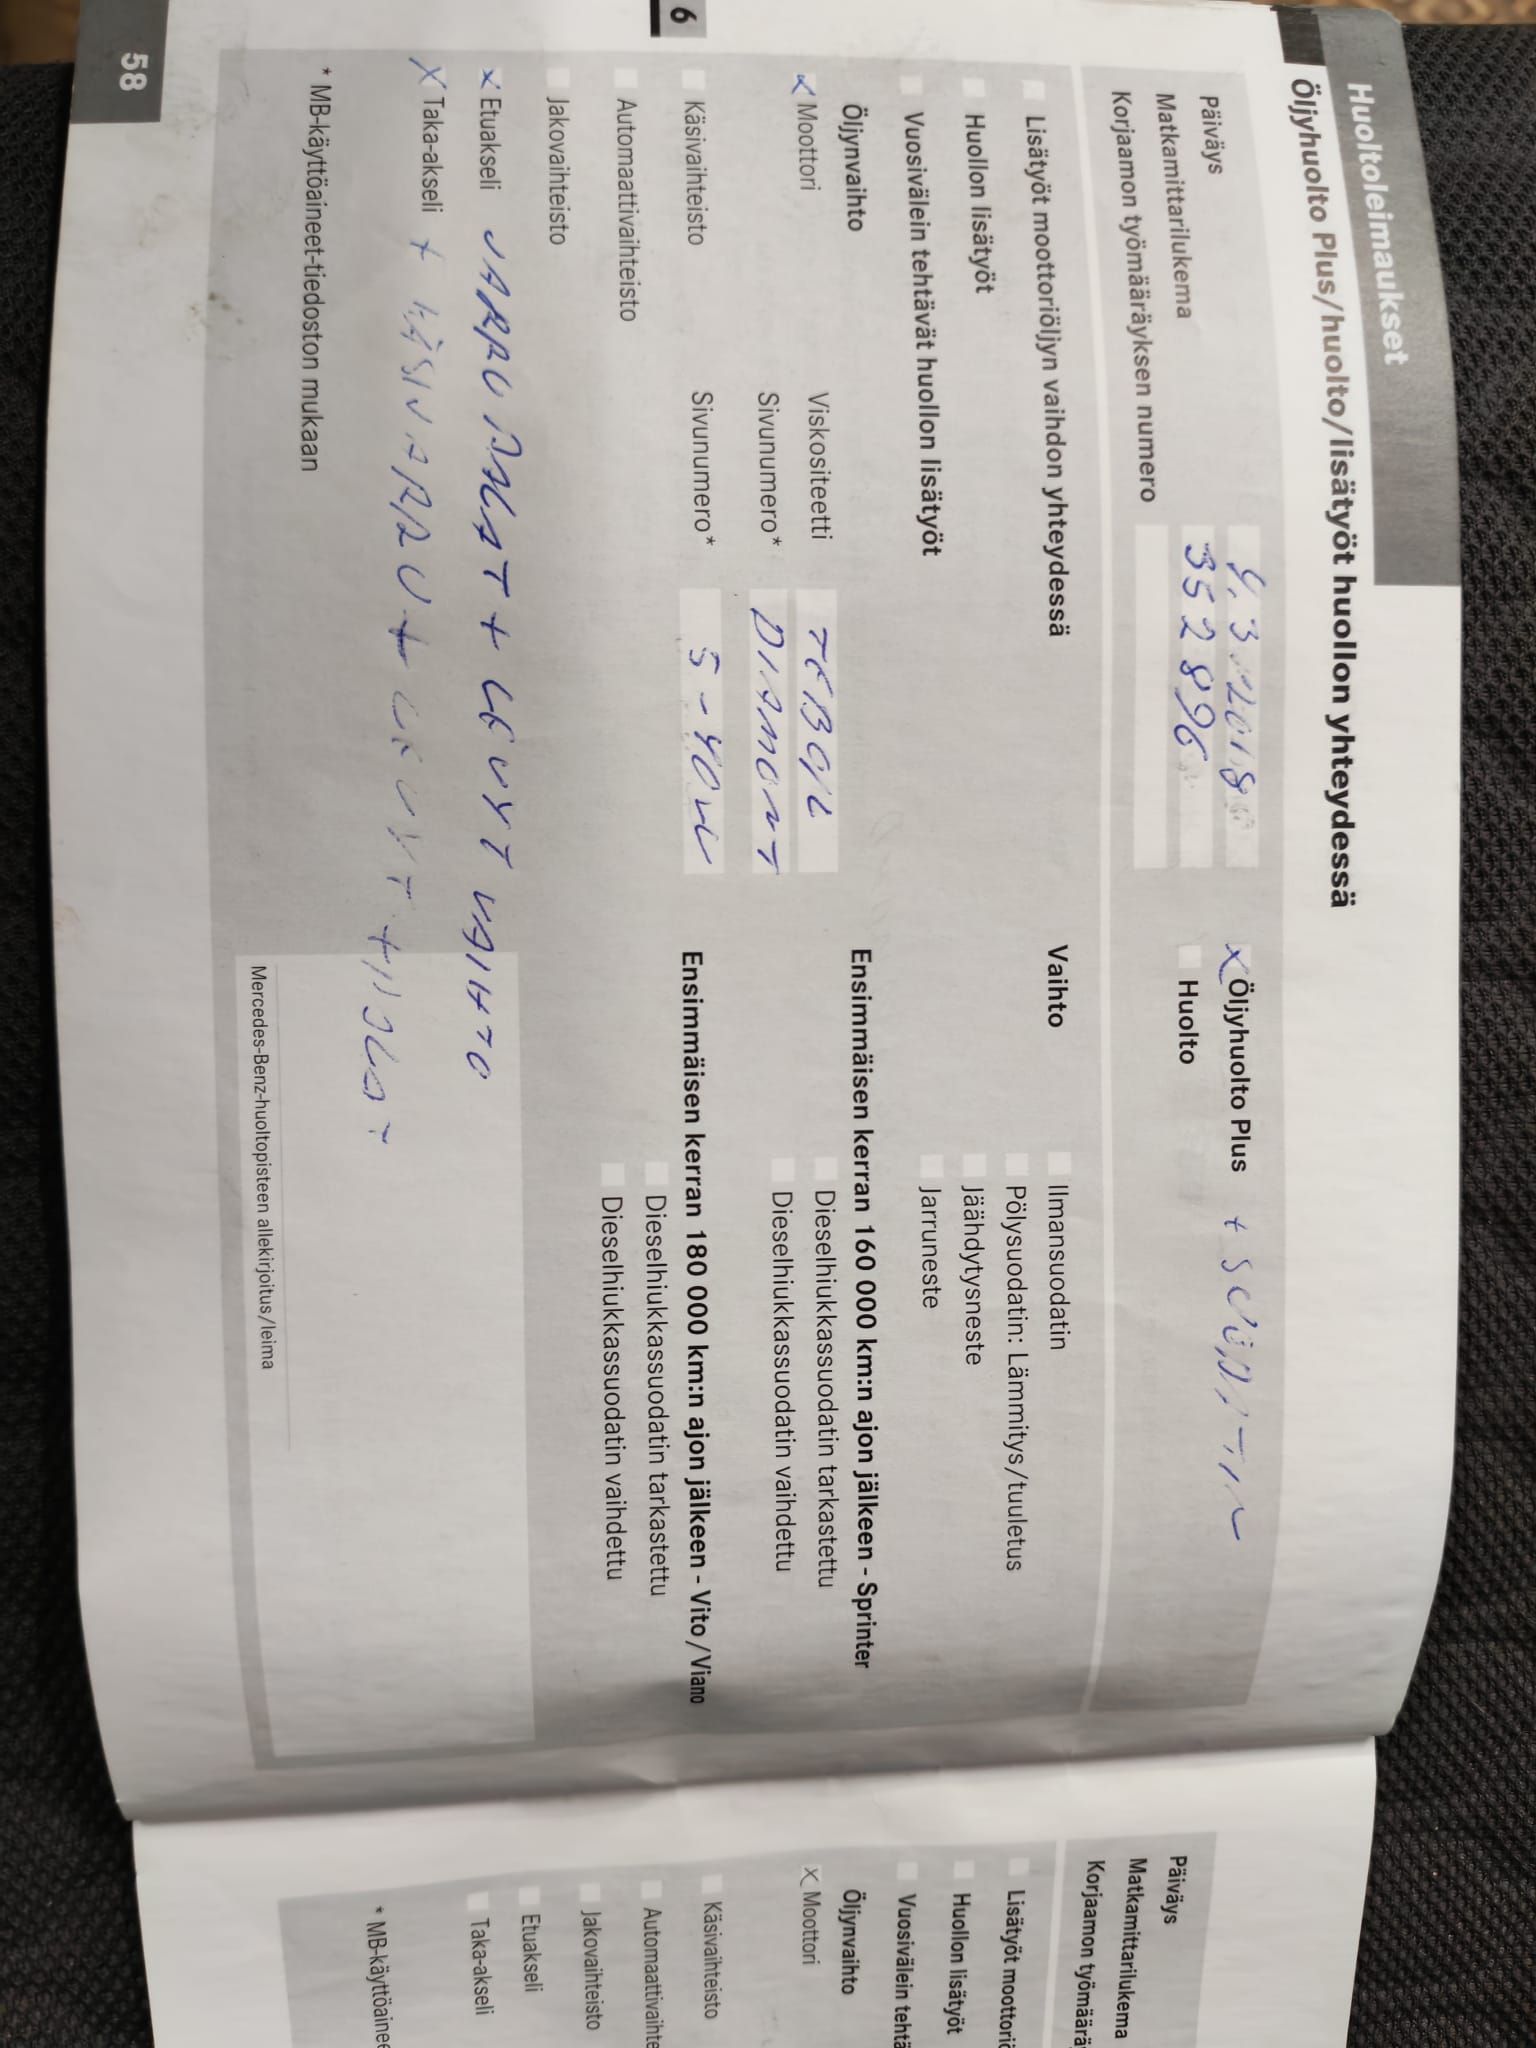 Huoltoleimaukset
Öljyhuolto Plus/huolto/lisätyöt huollon yhteydessä
Päiväys 4.3.2018
Matkamittarilukema 352896
Korjaamon työmääräyksen numero
x Öljyhuolto Plus + SUODATIN
Huolto
Lisätyöt moottoriöljyn vaihdon yhteydessä
Huollon lisätyöt
Vuosivälein tehtävät huollon lisätyöt
Öljynvaihto
x Moottori Viskositeetti TEBOIL
Sivunumero* DIAMONT
Käsivaihteisto Sivunumero* 5-40W
Automaattivaihteisto
Jakovaihteisto
x Etuakseli JARRUPALAT + LEVYT VAIHTO
x Taka-akseli + KÄSIJARRU + LEVYT +
* MB-käyttöaineet-tiedoston mukaan
Vaihto
Ilmansuodatin
Pölysuodatin: Lämmitys/tuuletus
Jäähdytysneste
Jarruneste
Ensimmäisen kerran 160 000 km:n ajon jälkeen - Sprinter
Dieselhiukkassuodatin tarkastettu
Dieselhiukkassuodatin vaihdettu
Ensimmäisen kerran 180 000 km:n ajon jälkeen - Vito/Viano
Dieselhiukkassuodatin tarkastettu
Dieselhiukkassuodatin vaihdettu
Mercedes-Benz-huoltopisteen allekirjoitus/leima
6
58
Päiväys
Matkamittarilukema
Korjaamon työmäärä
Lisätyöt moottoriö
Huollon lisätyöt
Vuosivälein tehtä
Öljynvaihto
x Moottori
Käsivaihteisto
Automaattivaihte
Jakovaihteisto
Etuakseli
Taka-akseli
* MB-käyttöainee